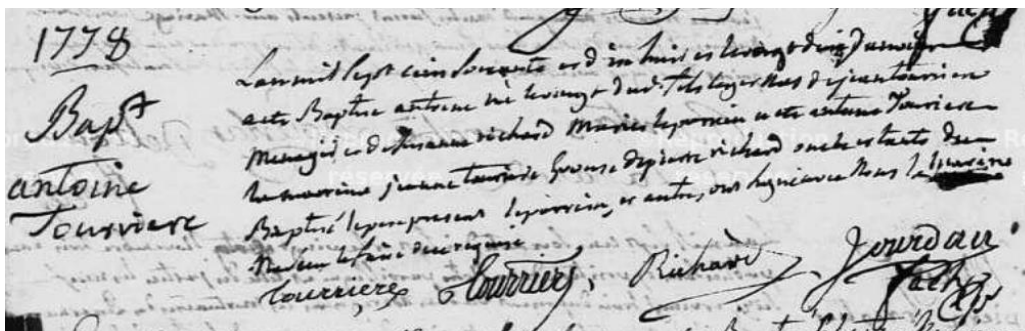 1778
Bap.t
antoine
Tourriere
L'an mil sept cens soixante et dix huit et le vingt deux janvier
a été Baptisé antoine né le vingt dud. fils legⁱ et nat. de jean tourriere
menager et de Susanne richard mariés le parrein a eté antoine Tourriere
la marraine jeanne tourriere Epouse de pierre richard oncle et tante du
Baptisé le pere present le parrein, et autres, ont signé avec Nous la marraine
de ce requise
tourrieres Tourriere, Richard Jourdan